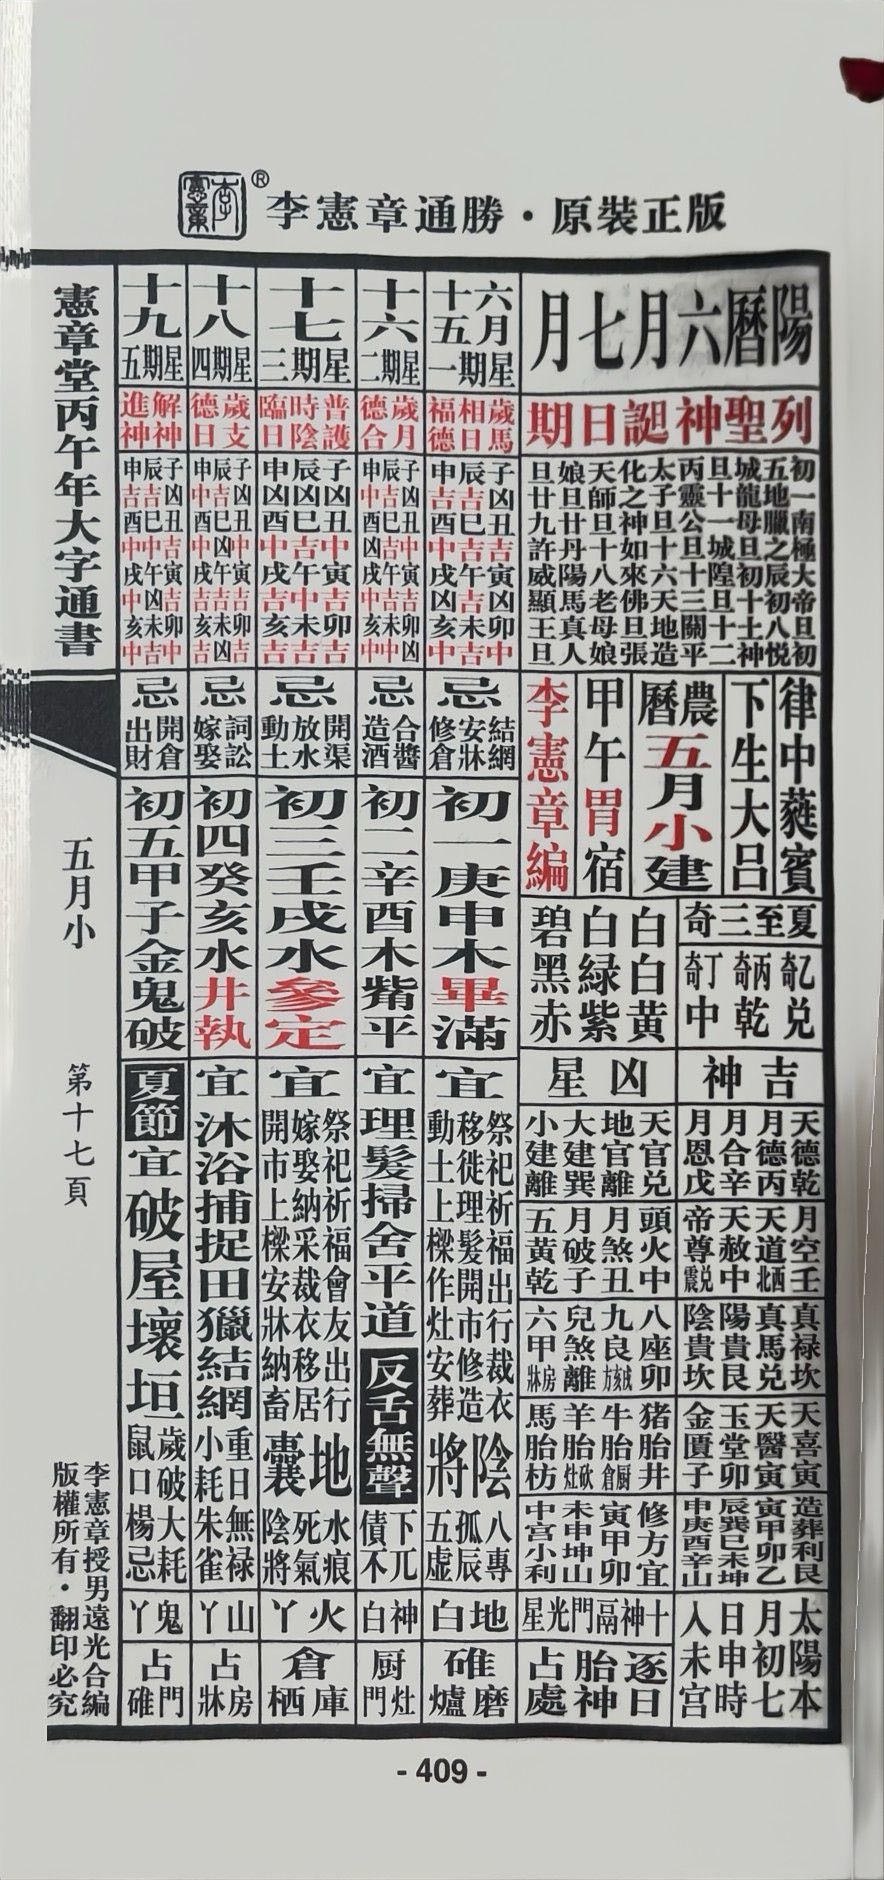 李憲章
®
李憲章通勝·原裝正版
陽曆六月七月
列聖神誕日期
初一南極大帝旦初
五地臘之辰初八悅
城龍母旦初十土神
旦十一城隍旦十二
丙靈公旦十三關平
太子旦十六天地造
化之神如來佛旦張
天師旦十八老母娘
娘旦廿丹陽馬真人
旦廿九許威顯王旦
律中蕤賓
下生大呂
農曆
五月小建
甲午胃宿
李憲章編
夏至三奇
乙奇兌
丙奇乾
丁奇中
白白黃
白綠紫
碧黑赤
吉神
凶星
天德乾
月德丙
月合辛
月恩戊
天官兌
地官離
大建巽
小建離
月空壬
天道西北
天赦中
帝尊兌震
頭火中
月煞丑
月破子
五黃乾
真祿坎
真馬兌
陽貴艮
陰貴坎
八座卯
九良
兒煞離
六甲房牀
天喜寅
天醫寅
玉堂卯
金匱子
猪胎井
牛胎厨倉
羊胎
馬胎枋
造葬利艮
寅甲卯乙
辰巽巳未坤
申庚酉辛山
修方宜
寅甲卯
未申坤山
中宮小利
太陽本
月初七
日申時
入未宮
十神鬲門光星
逐日胎神占處
六月十五
星期一
歲馬相日福德
子凶丑吉寅凶卯中
辰吉巳吉午吉未吉
申吉酉中戌凶亥中
忌
結網安牀修倉
初一庚申木畢滿
宜
祭祀祈福出行裁衣
移徙理髮開市修造
動土上樑作灶安葬
陰將
八專
孤辰
五虛
地白
碓磨爐
十六
星期二
歲月德合
忌
合醬造酒
初二辛酉木觜平
宜
理髮掃舍平道
反舌無聲
下兀債不
神白
厨灶門
十七
星期三
普護時陰臨日
子凶丑中寅吉卯吉
辰凶巳吉午中未吉
申凶酉中戌吉亥吉
忌
開渠放水動土
初三壬戌水參定
宜
祭祀祈福會友出行
嫁娶納采裁衣移居
開市上樑安牀納畜
地囊
水痕
死氣
陰將
火丫
倉庫栖
十八
星期四
歲支德日
忌
詞訟嫁娶
初四癸亥水井執
宜
沐浴捕捉田獵結網
重日無祿
小耗朱雀
山丫
占房牀
十九
星期五
解神進神
忌
開倉出財
初五甲子金鬼破
夏節
宜
破屋壞垣
歲破大耗
鼠口楊忌
鬼丫
占門碓
憲章堂丙午年大字通書
五月小
第十七頁
李憲章授男遠光合編
版權所有·翻印必究
- 409 -